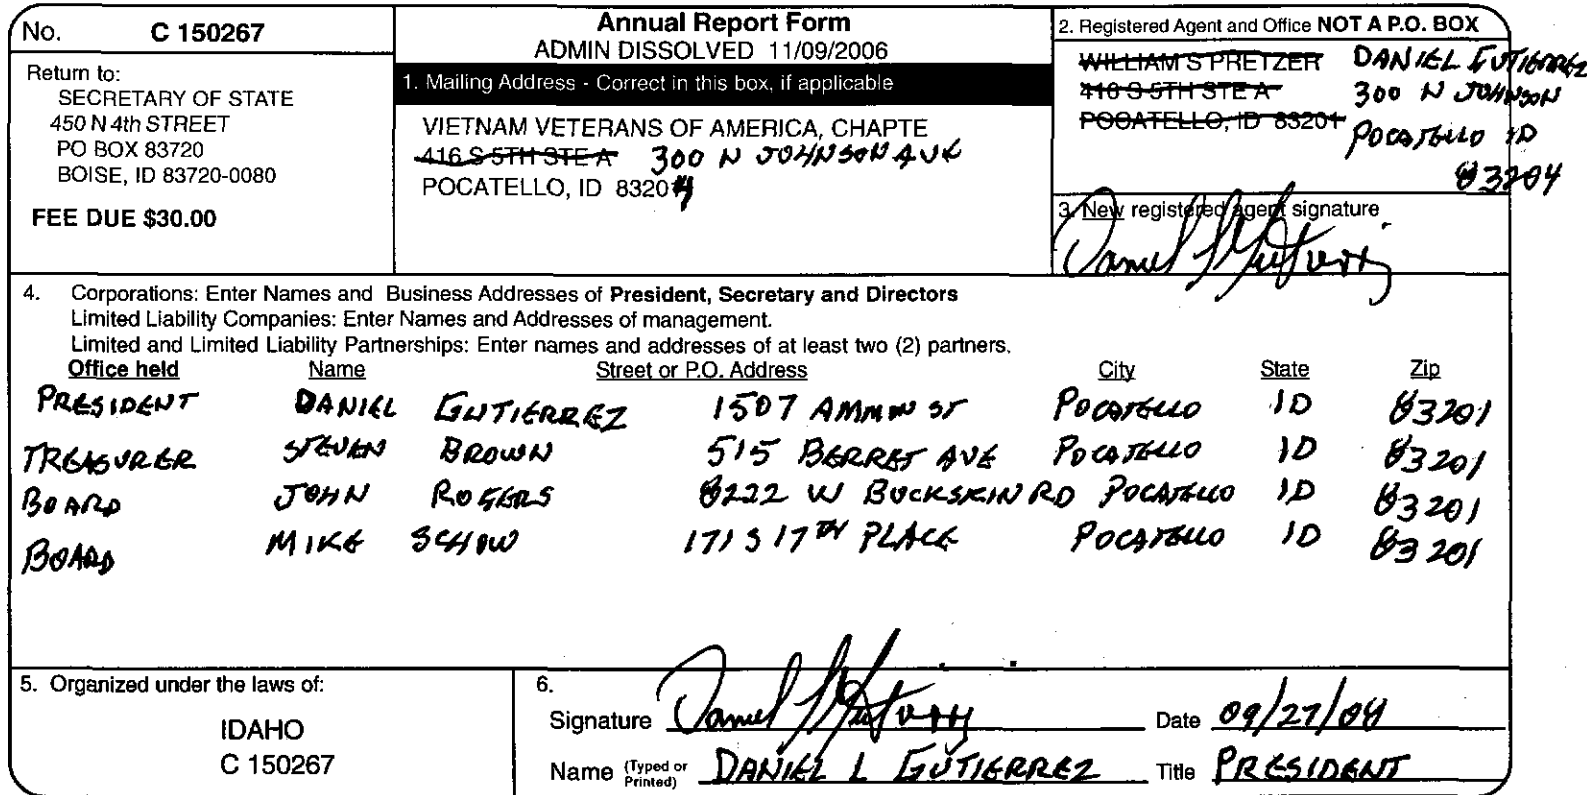 No. C 150267
Return to:
SECRETARY OF STATE
450 N 4th STREET
PO BOX 83720
BOISE, ID 83720-0080
FEE DUE $30.00
Annual Report Form
ADMIN DISSOLVED 11/09/2006
1. Mailing Address - Correct in this box, if applicable
VIETNAM VETERANS OF AMERICA, CHAPTE
416 S 5TH STE A 300 N JOHNSON AVE
POCATELLO, ID 83204
2. Registered Agent and Office NOT A P.O. BOX
WILLIAM S PRETZER DANIEL GUTIERREZ
416 S 5TH STE A 300 N JOHNSON
POCATELLO, ID 83201 POCATELLO ID
83204
3. New registered agent signature
4. Corporations: Enter Names and Business Addresses of President, Secretary and Directors
Limited Liability Companies: Enter Names and Addresses of management.
Limited and Limited Liability Partnerships: Enter names and addresses of at least two (2) partners.
Office held Name Street or P.O. Address City State Zip
PRESIDENT DANIEL GUTIERREZ 1507 ST POCATELLO ID 83201
TREASURER STEVEN BROWN 515 BERRET AVE POCATELLO ID 83201
BOARD JOHN ROGERS 8222 W BUCKSKIN RD POCATELLO ID 83201
BOARD MIKE SCHOW 171 S 17TH PLACE POCATELLO ID 83201
5. Organized under the laws of:
IDAHO
C 150267
6.
Signature Date
Name (Typed or Printed) DANIEL L GUTIERREZ Title PRESIDENT